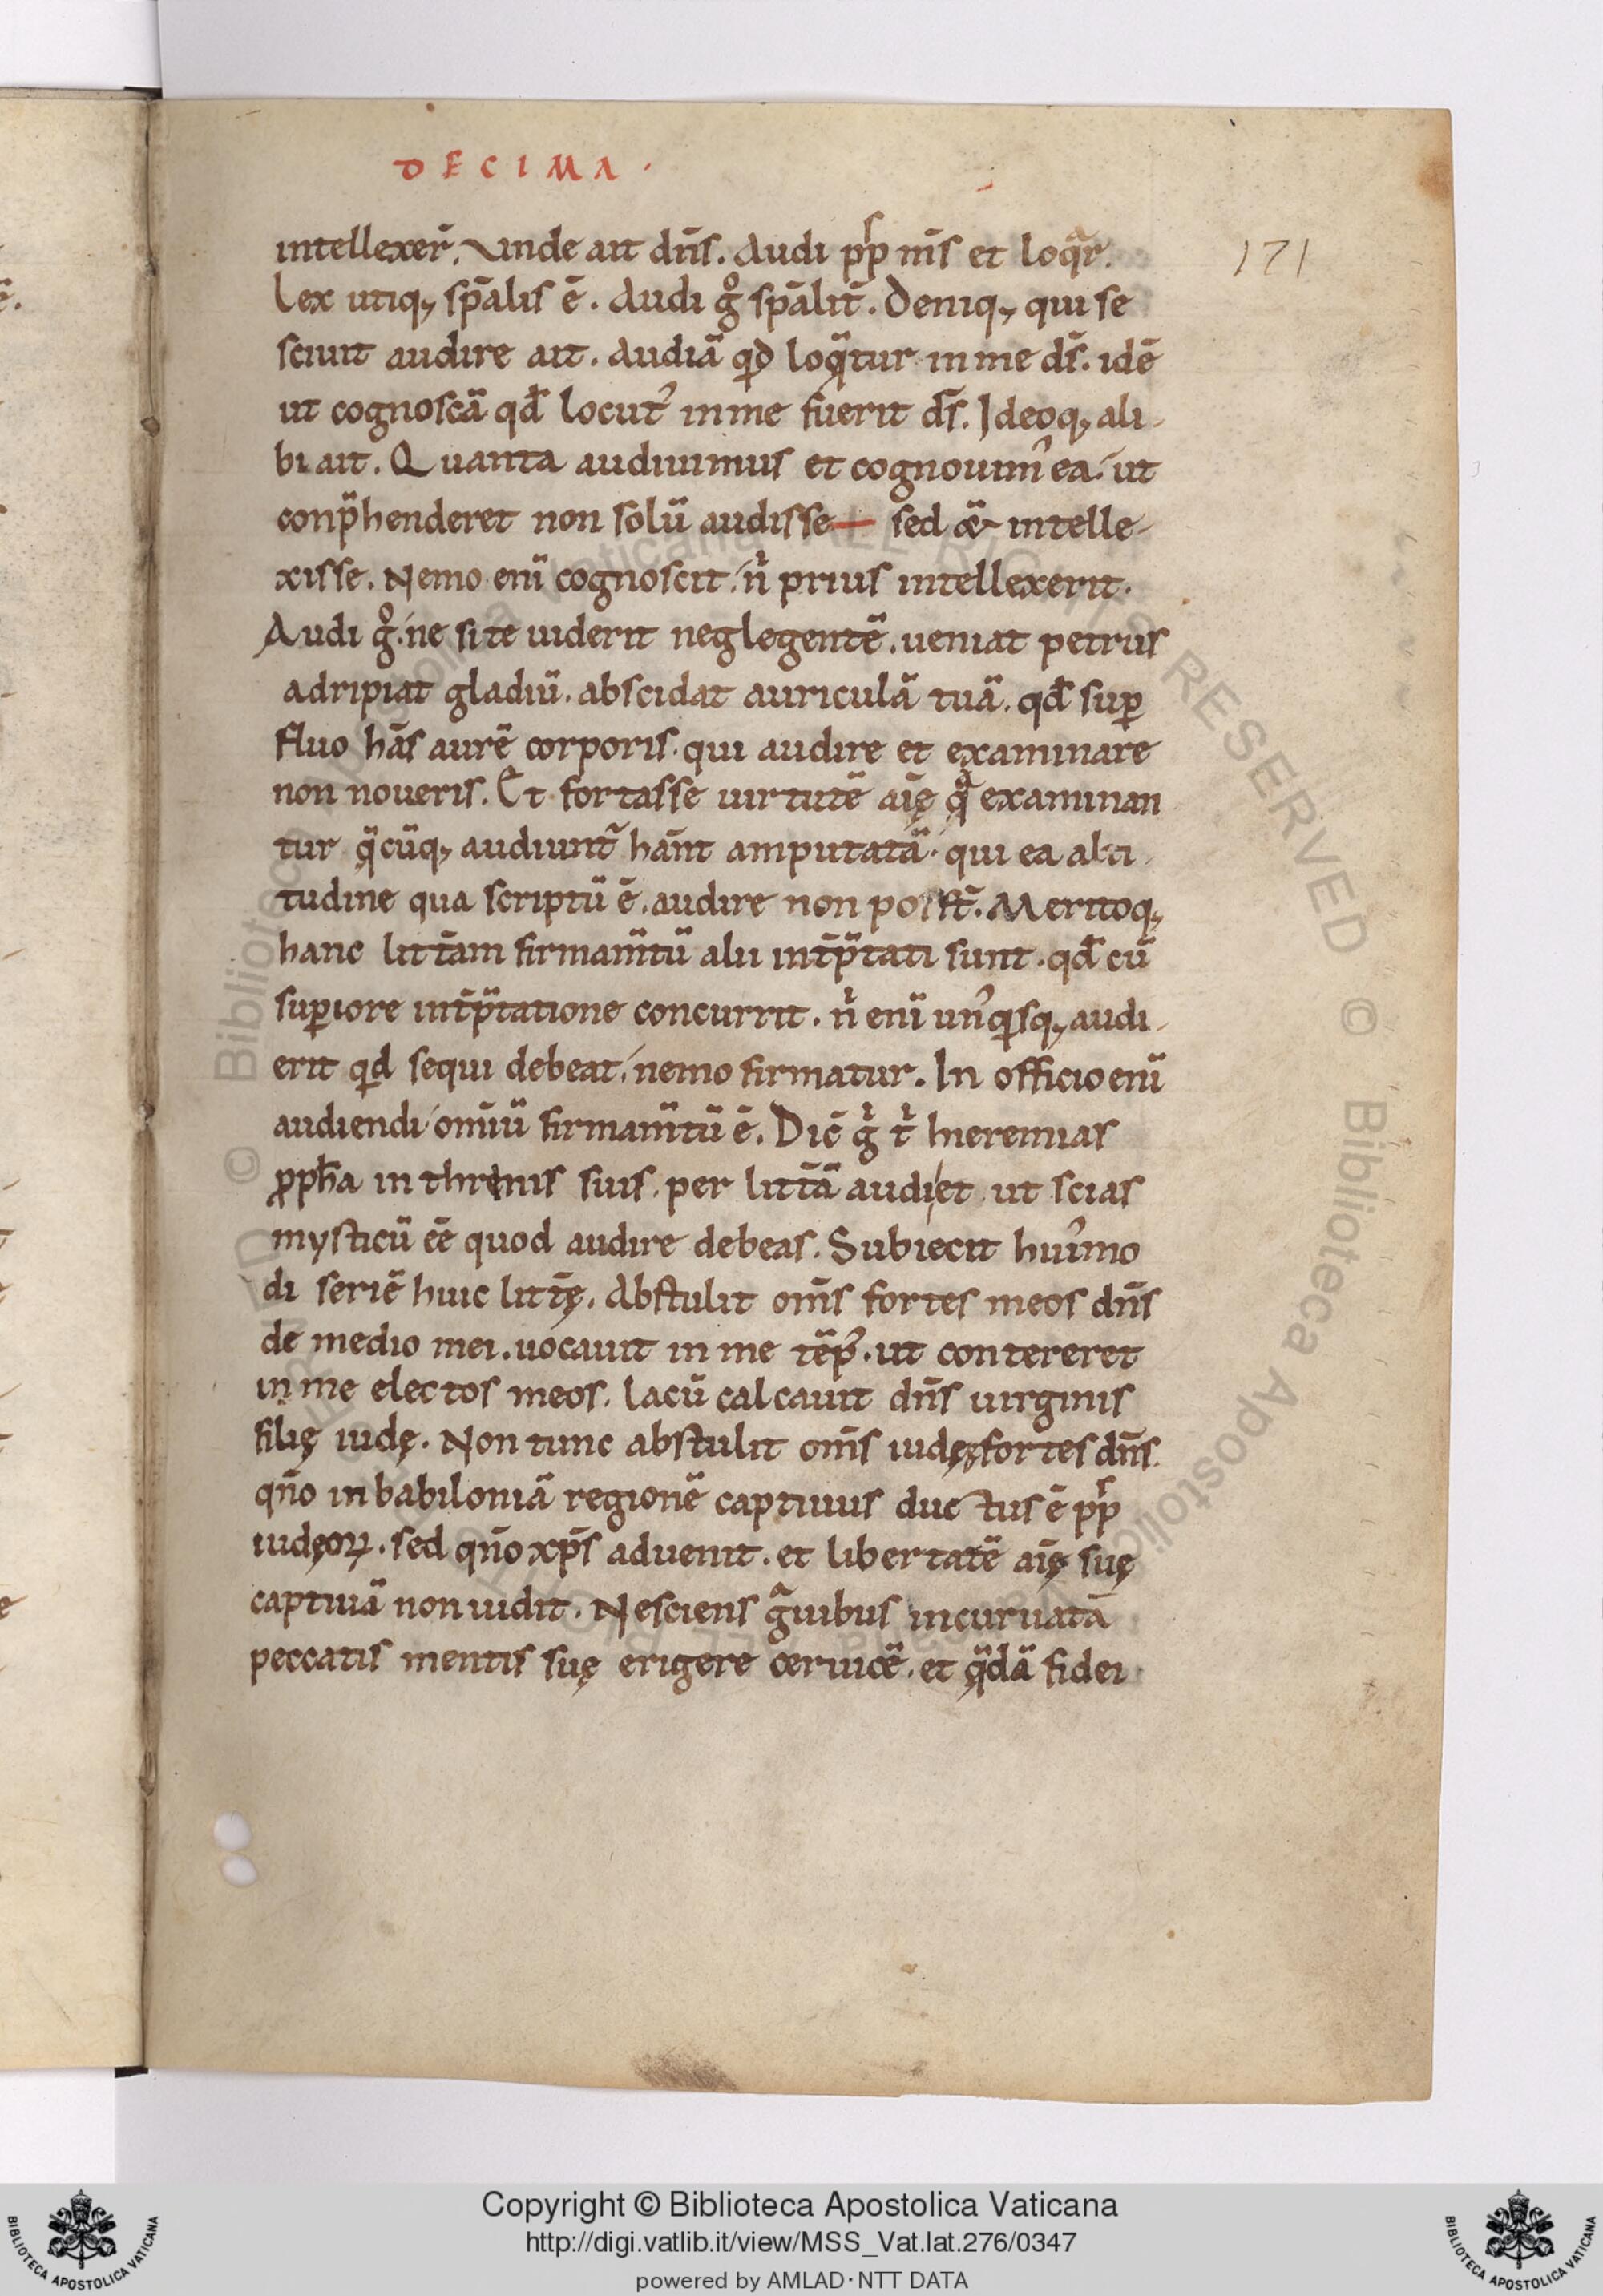 DECIMA.
171
intellexer̄. Vnde ait dn̄s. Audi ppl̄s m̄s et loqͣr.
Lex utiq; sp̄alis ē. Audi gͦ sp̄alit̄. Deniq; qui se
sciuit audire ait. Audiā qͥd loqͣtur in me ds̄. idē
ut cognoscā qd̄ locut᾽ in me fuerit ds̄. Ideoq; ali-
bi ait. Quanta audiuimus et cognouim᾽ ea. ut
conp̄henderet non solū audisse sed & intelle-
xisse. Nemo enī cognoscit. nͥ prius intellexerit.
Audi gͦ. ne si te uiderit neglegentē. ueniat petrus
adripiat gladiū. abscidat auriculā tuā. qd̄ suꝑ
fluo hn̄s aurē corporis. qui audire et examinare
non noueris. Et fortasse uirtutē aīę qͣ examinan
tur qͣcūq; audiunt᷑ hn̄t amputatā. qui ea alti-
tudine qua scriptū ē. audire non poss̄t. Meritoq;
hanc litt̄am firmam̄tū alii int̄p̄tati sunt. qd̄ cū
suꝑiore int̄p̄tatione concurrit. nͥ enī un᾽qͥsq; audi-
erit qͥd sequi debeat. nemo firmatur. In officio enī
audiendi om̄iū firmam̄tū ē. Dic̄ gͥ tͥ hieremias
ꝓph̄a in threnis suis. per litt̄ā audiet ut scias
mysticū eē quod audire debeas. Subiecit hui᾽mo
di seriē huic litt̄ę. Abstulit om̄s fortes meos dn̄s
de medio mei. uocauit in me tēp᾽. ut contereret
in me electos meos. lacū calcauit dn̄s uirginis
filię iudę. Non tunc abstulit om̄s iudęę fortes dn̄s.
qn̄o in babiloniā regionē captiuus ductus ē ppl̄s
iudęoꝝ. sed qn̄o xp̄s aduenit. et libertatē aīę suę
captiuā non uidit. Nesciens gͣuibus incuruatā
peccatis mentis suę erigere ceruicē. et qͣdā fidei
Copyright © Biblioteca Apostolica Vaticana
http://digi.vatlib.it/view/MSS_Vat.lat.276/0347
powered by AMLAD·NTT DATA